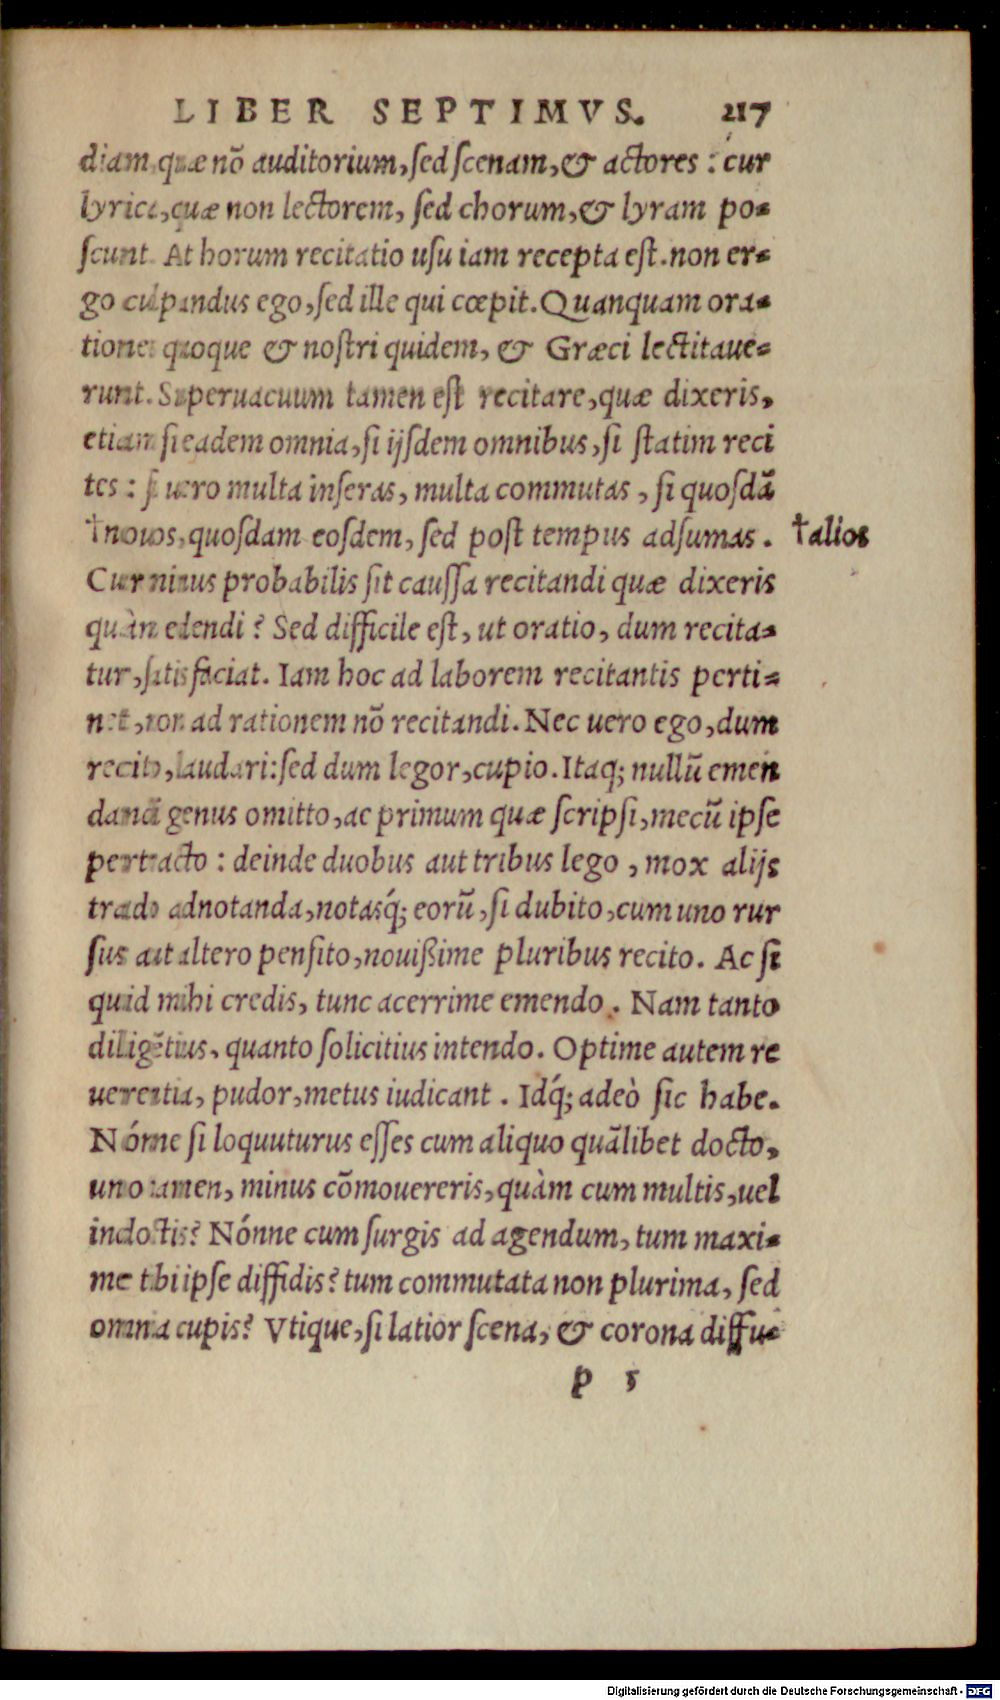 LIBER SEPTIMVS. 217
diam, quæ nō auditorium, sed scenam, & actores : cur
lyrica, quæ non lectorem, sed chorum, & lyram po-
scunt. At horum recitatio usu iam recepta est. non er-
go culpandus ego, sed ille qui cœpit. Quanquam ora-
tiones quoque & nostri quidem, & Græci lectitaue-
runt. Superuacuum tamen est recitare, quæ dixeris,
etiam si eadem omnia, si ijsdem omnibus, si statim reci
tes : si uero multa inseras, multa commutas, si quosdā
†nouos, quosdam eosdem, sed post tempus adsumas. †alios
Cur minus probabilis sit caussa recitandi quæ dixeris
quàm edendi? Sed difficile est, ut oratio, dum recita-
tur, satisfaciat. Iam hoc ad laborem recitantis perti-
net, non ad rationem nō recitandi. Nec uero ego, dum
recito, laudari: sed dum legor, cupio. Itaq; nullū emen
dandi genus omitto, ac primum quæ scripsi, mecū ipse
pertracto : deinde duobus aut tribus lego, mox alijs
trado adnotanda, notasq́; eorū, si dubito, cum uno rur
sus aut altero pensito, nouißime pluribus recito. Ac si
quid mihi credis, tunc acerrime emendo. Nam tanto
diligētius, quanto solicitius intendo. Optime autem re
uerentia, pudor, metus iudicant. Idq́; adeò sic habe.
Nónne si loquuturus esses cum aliquo quālibet docto,
uno tamen, minus cōmouereris, quàm cum multis, uel
indoctis? Nónne cum surgis ad agendum, tum maxi-
me tibi ipse diffidis? tum commutata non plurima, sed
omnia cupis? Vtique, si latior scena, & corona diffu-
p 5
Digitalisierung gefördert durch die Deutsche Forschungsgemeinschaft - DFG